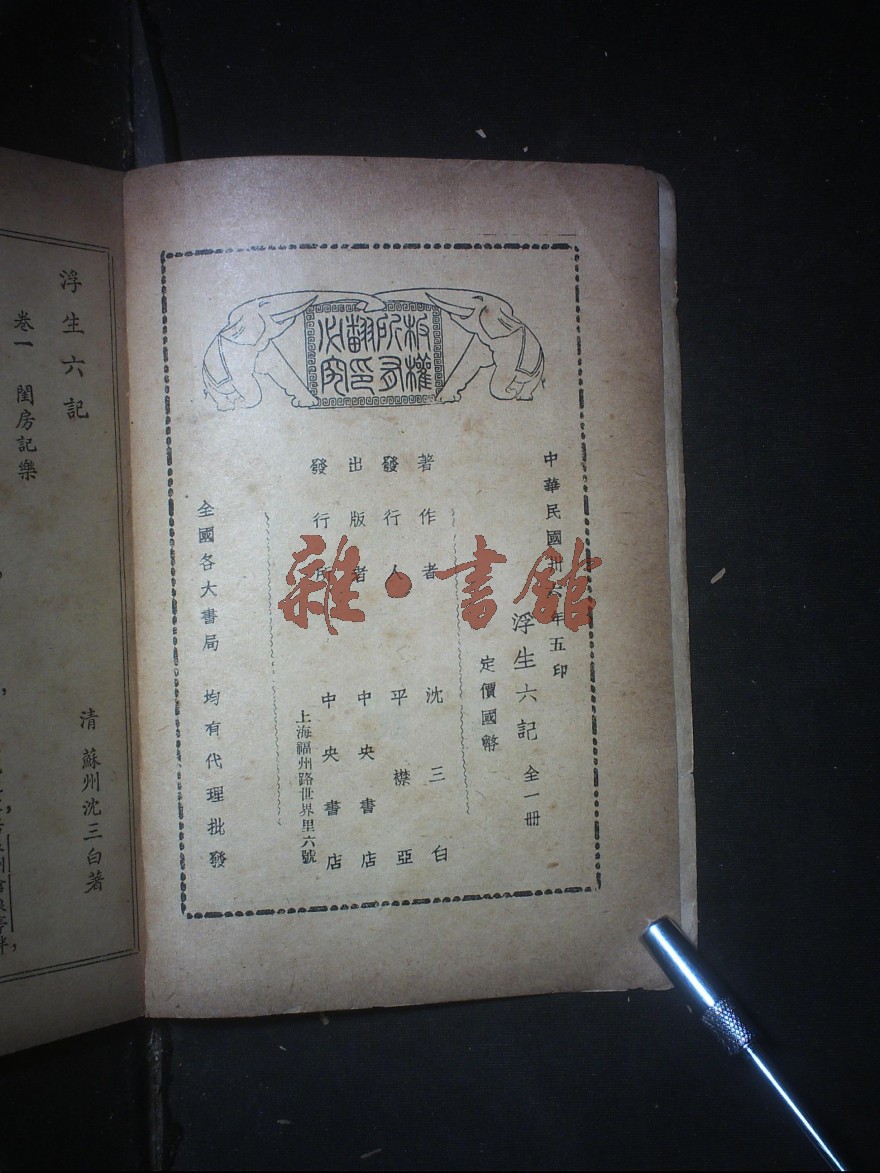 板權
所有
翻印
必究
中華民國卅六年五印
浮生六記 全一冊
定價國幣
著作者 沈三白
發行人 平襟亞
出版者 中央書店
發行所 中央書店
上海福州路世界里六號
全國各大書局 均有代理批發
雜·書館
浮生六記
清 蘇州沈三白著
卷一 閨房記樂